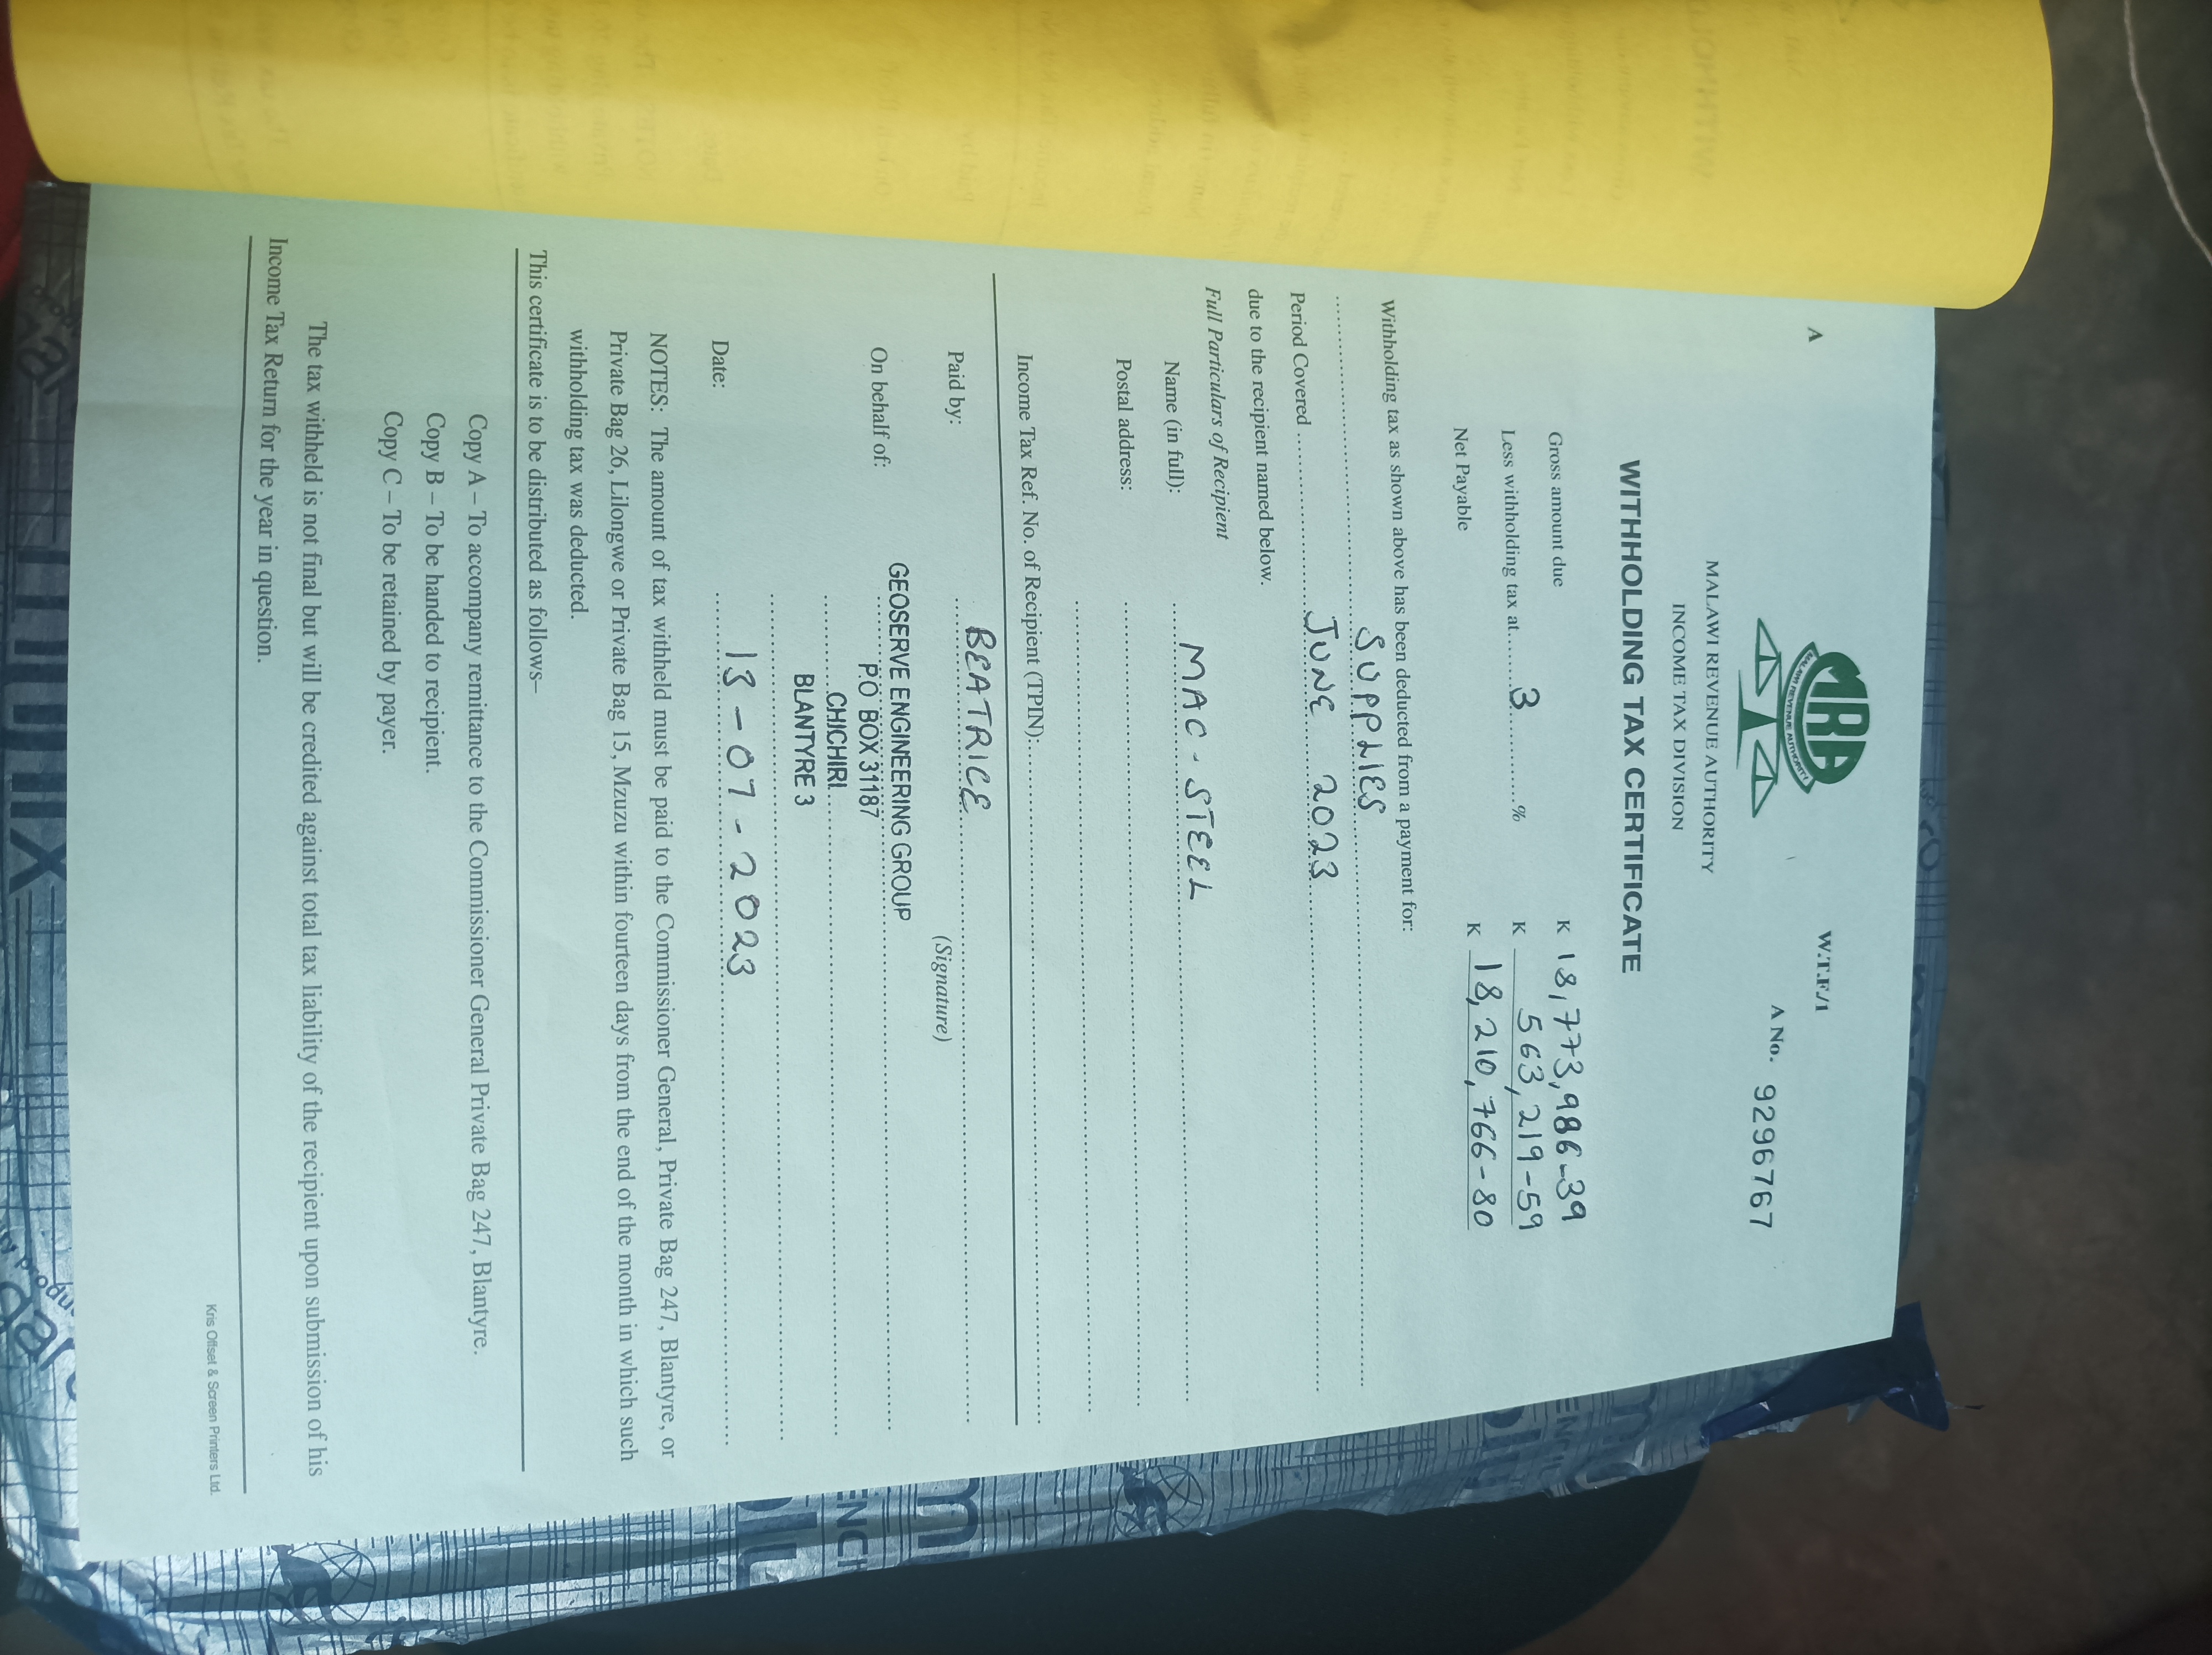 A
W.T.F./1
A No. 9296767
MRA
MALAWI REVENUE AUTHORITY
MALAWI REVENUE AUTHORITY
INCOME TAX DIVISION
WITHHOLDING TAX CERTIFICATE
Gross amount due K 18,773,986-39
Less withholding tax at......3............% K 563,219-59
Net Payable K 18,210,766-80
Withholding tax as shown above has been deducted from a payment for:
SUPPLIES
Period Covered JUNE 2023
due to the recipient named below.
Full Particulars of Recipient
Name (in full): MAC-STEEL
Postal address:
Income Tax Ref. No. of Recipient (TPIN):
Paid by: BEATRICE
(Signature)
On behalf of: GEOSERVE ENGINEERING GROUP
P.O BOX 31187
CHICHIRI
BLANTYRE 3
Date: 13-07-2023
NOTES: The amount of tax withheld must be paid to the Commissioner General, Private Bag 247, Blantyre, or
Private Bag 26, Lilongwe or Private Bag 15, Mzuzu within fourteen days from the end of the month in which such
withholding tax was deducted.
This certificate is to be distributed as follows–
Copy A – To accompany remittance to the Commissioner General Private Bag 247, Blantyre.
Copy B – To be handed to recipient.
Copy C – To be retained by payer.
The tax withheld is not final but will be credited against total tax liability of the recipient upon submission of his
Income Tax Return for the year in question.
Kris Offset & Screen Printers Ltd.